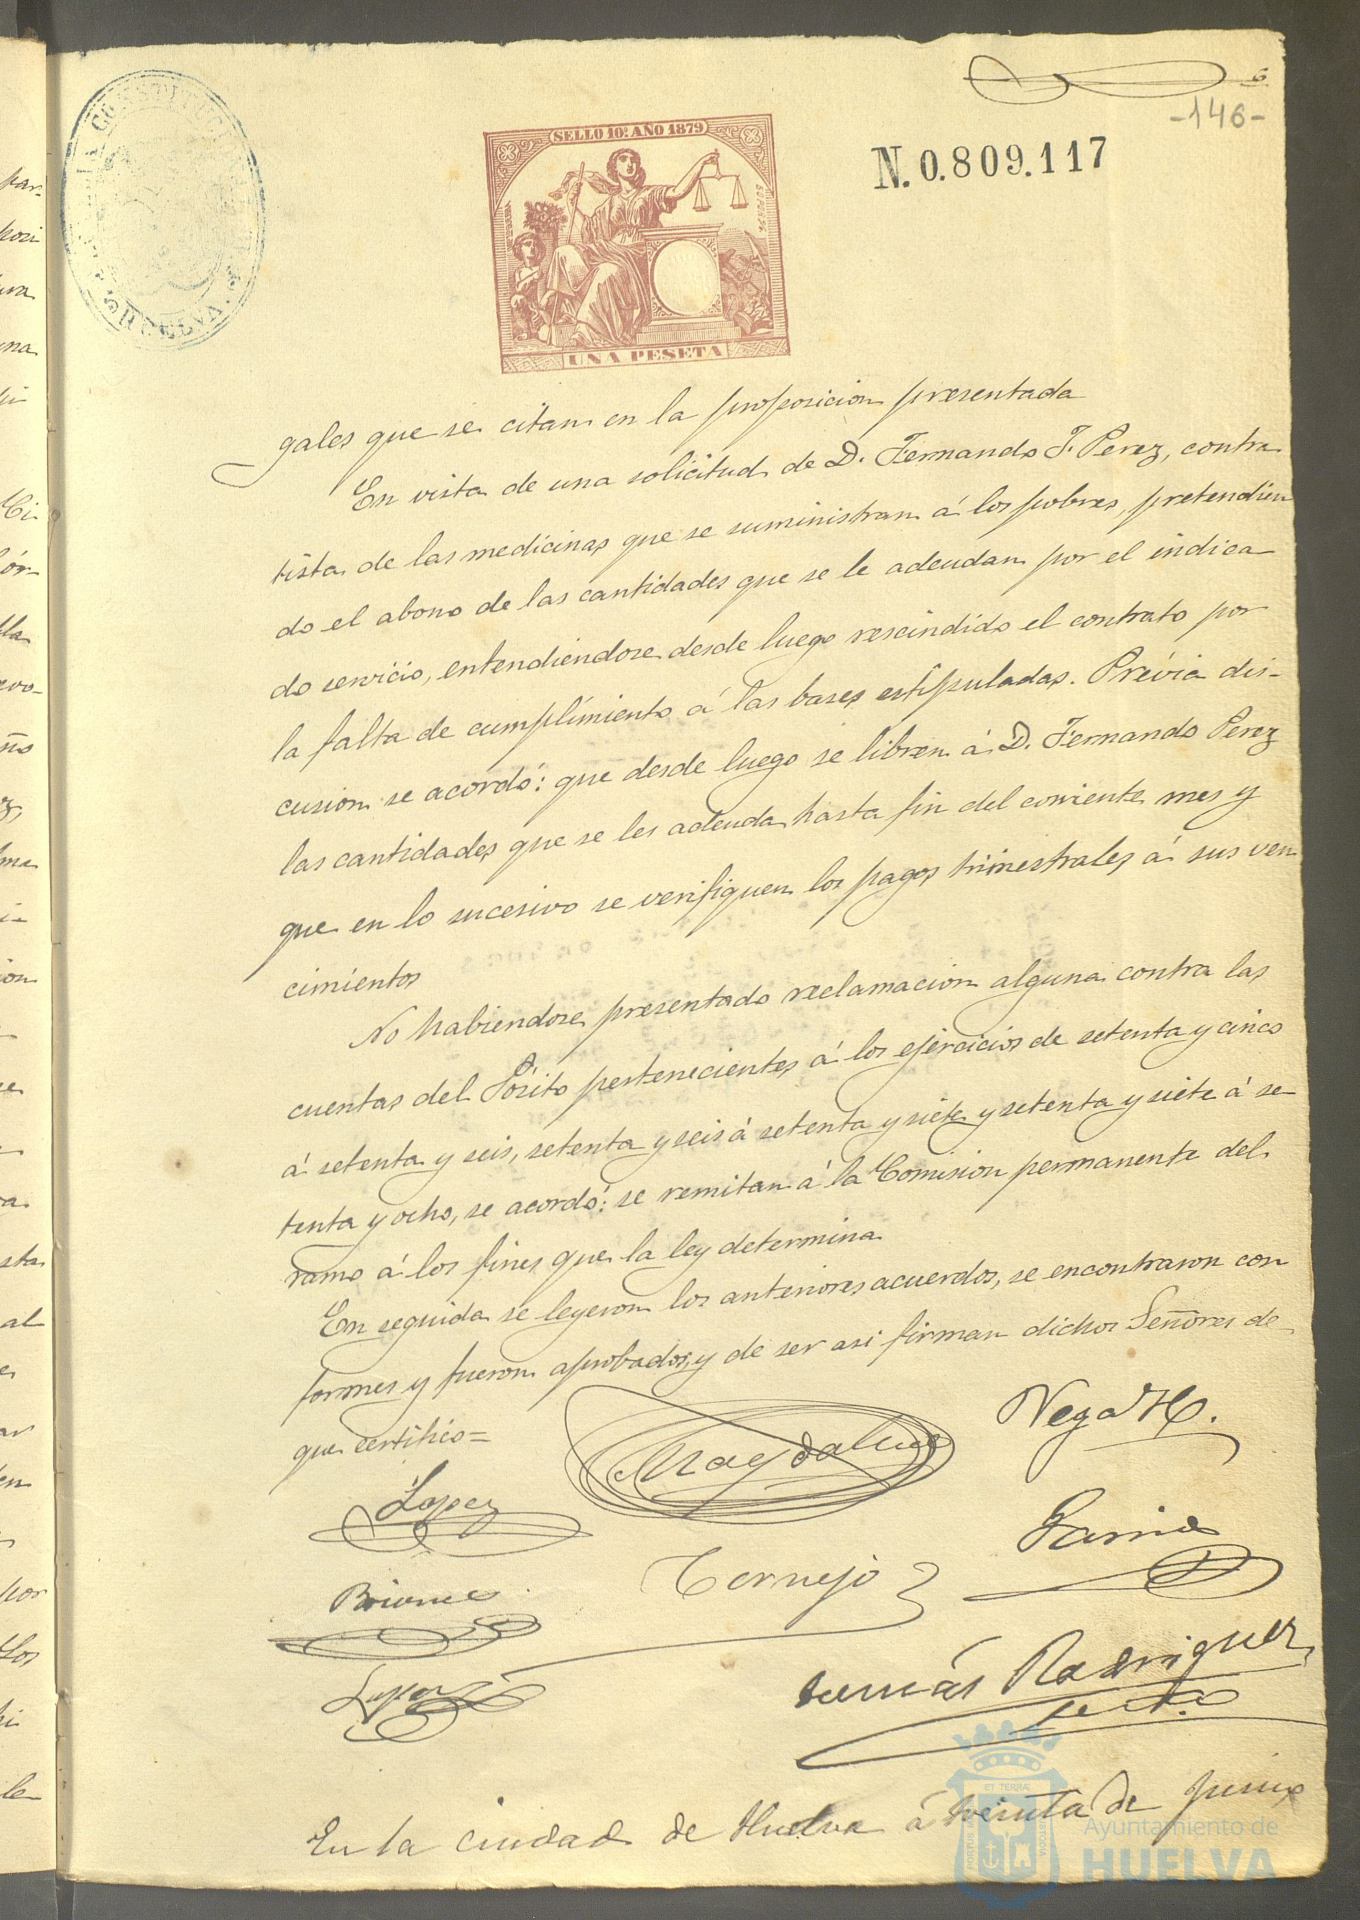 6
-146-
CONSTITUCI
HUELVA
SELLO 10º AÑO 1879
N. 0.809.117
UNA PESETA
gales que se citan en la proposicion presentada
En vista de una solicitud de D. Fernando F. Perez, contra
tista de las medicinas que se suministran á los pobres, pretendien
do el abono de las cantidades que se le adeudan por el indica
do servicio, entendiendose desde luego rescindido el contrato por
la falta de cumplimiento á las bases estipuladas. Prévia dis-
cusion se acordó: que desde luego se libren á D. Fernando Perez
las cantidades que se les adeuda hasta fin del corriente mes y
que en lo sucesivo se verifiquen los pagos trimestrales á sus ven
cimientos
No habiendose presentado reclamacion alguna contra las
cuentas del Pósito pertenecientes á los ejercicios de setenta y cinco
á setenta y seis, setenta y seis á setenta y siete y setenta y siete á se-
tenta y ocho, se acordó: se remitan á la Comision permanente del
ramo á los fines que la ley determina
En seguida se leyeron los anteriores acuerdos, se encontraron con
formes y fueron aprobados, y de ser asi firman dichos Señores de
que certifico=
Vega H.
Magdalena
Lopez
Garrido
Cornejo
Briones
Lopez
Tomás Rodriguez
En la ciudad de Huelva á treinta de Junio
Ayuntamiento de
HUELVA